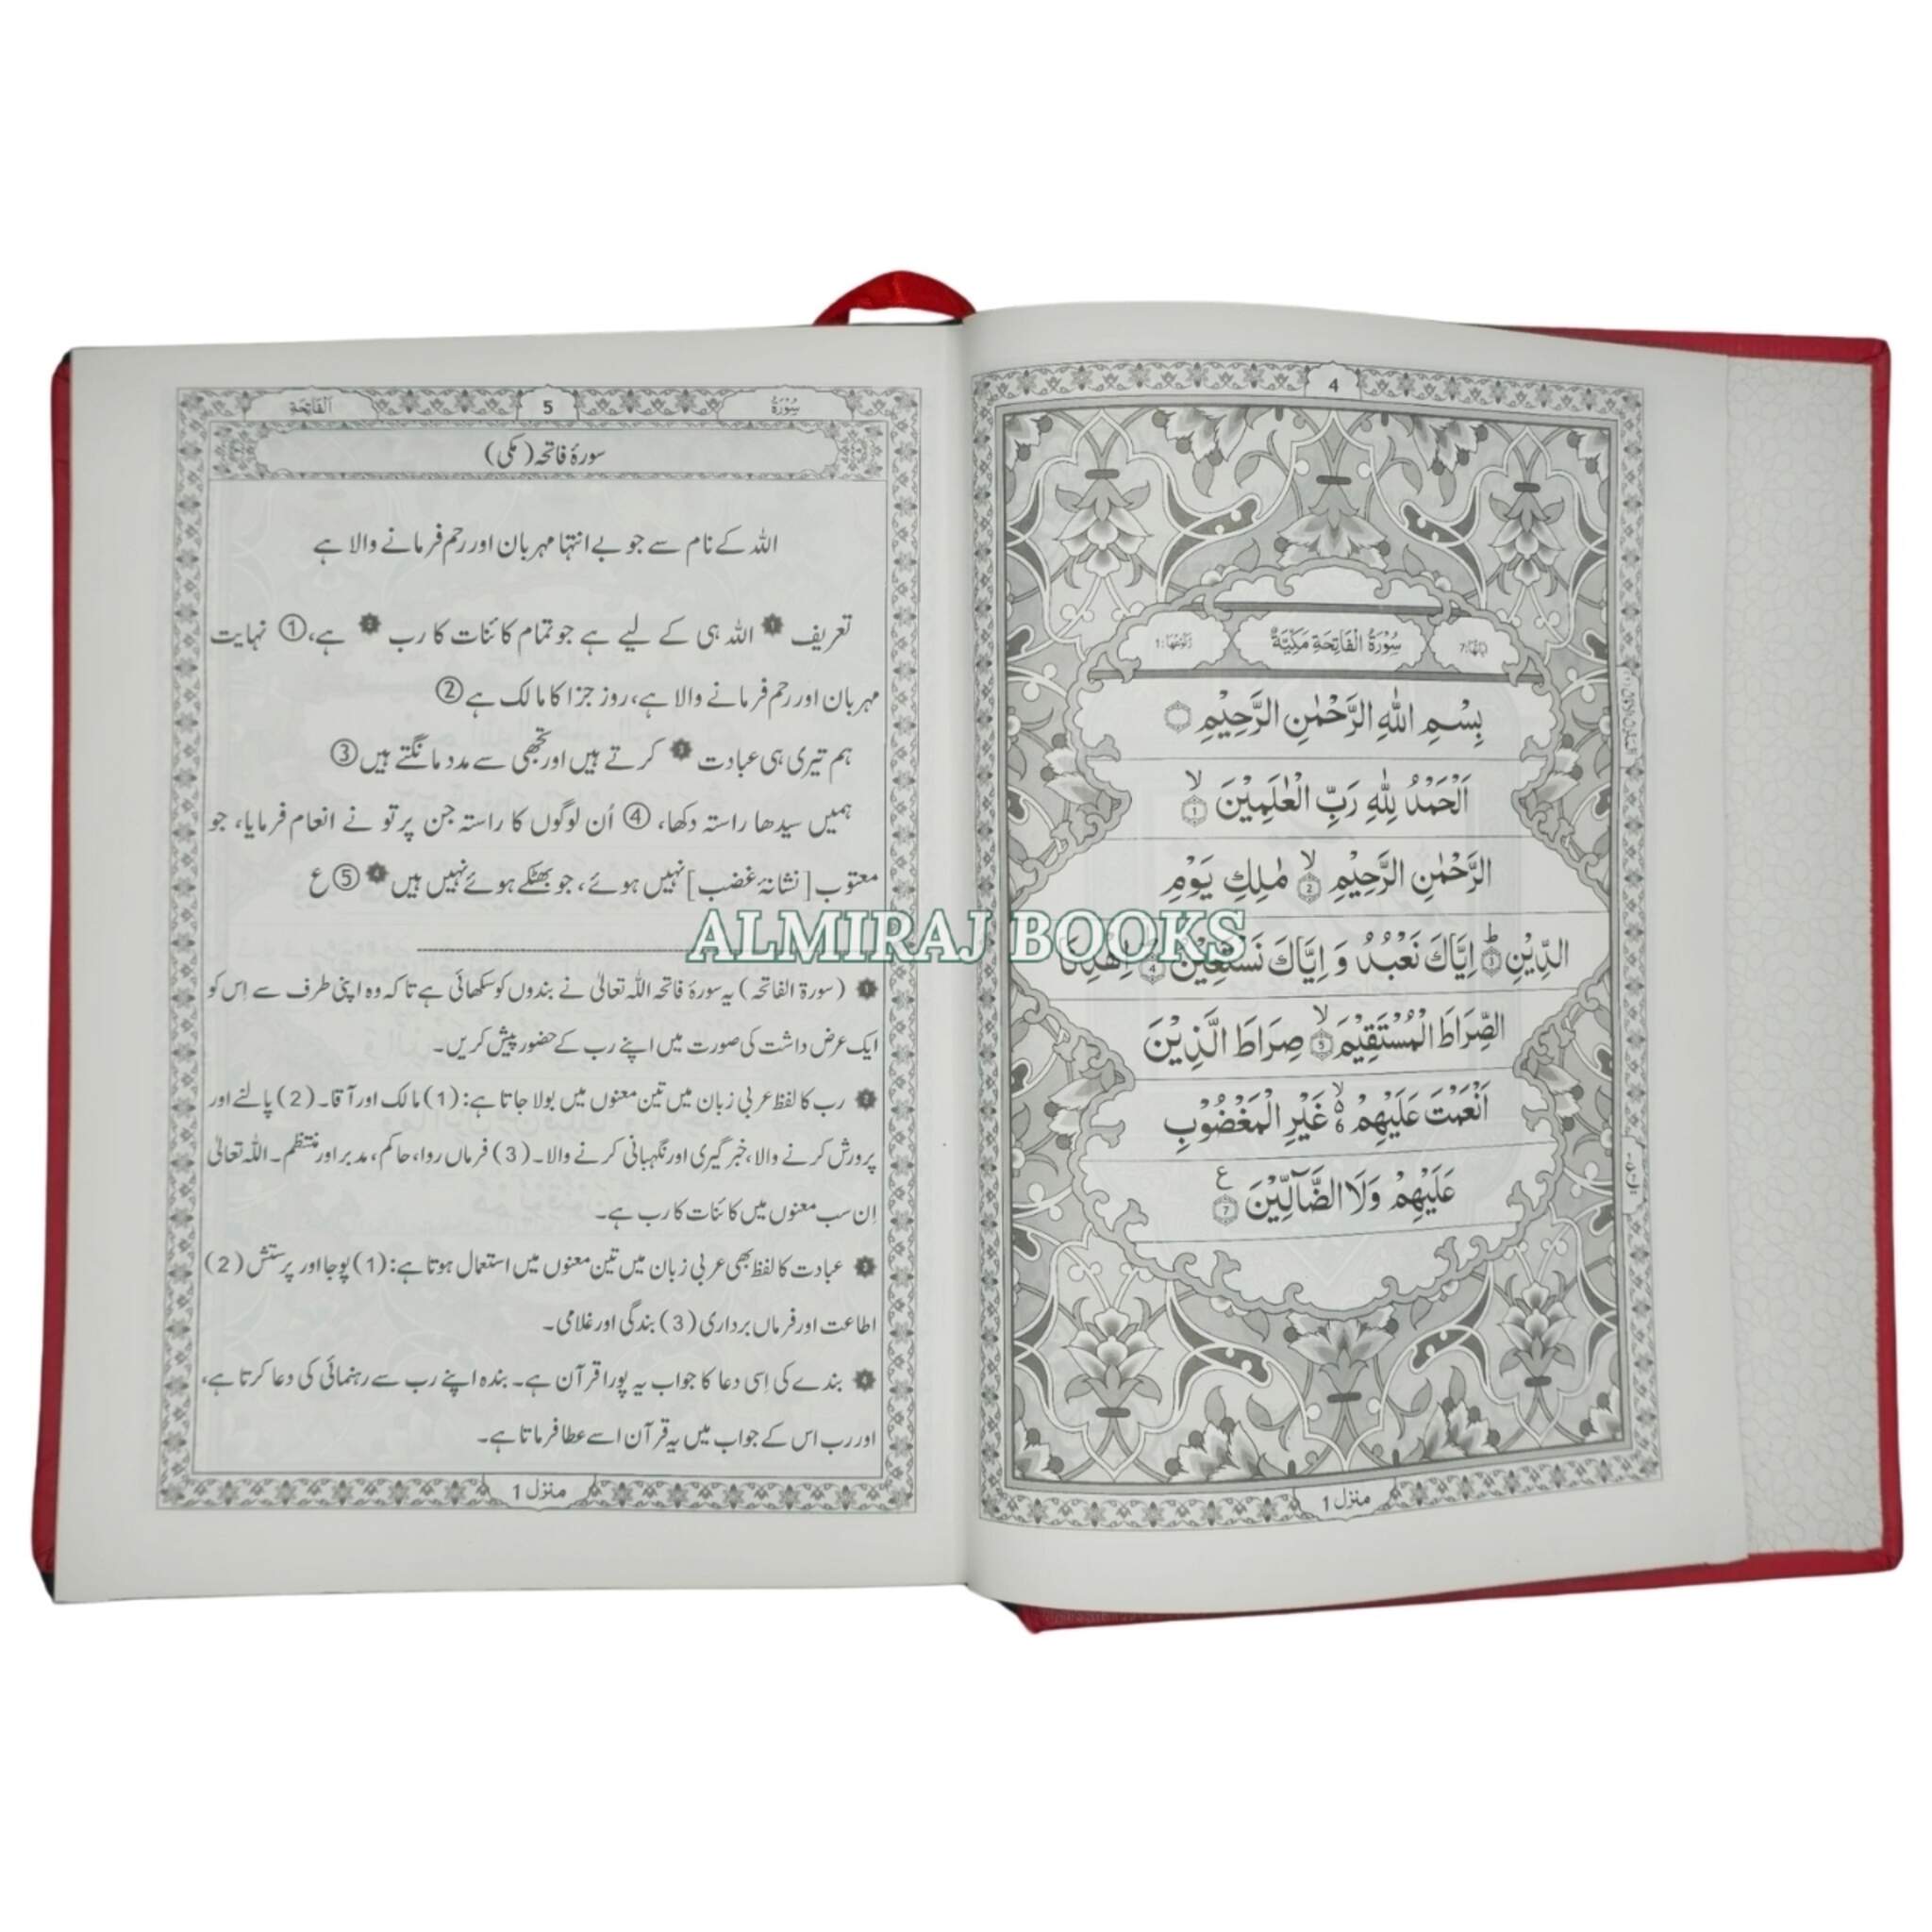 4
اٰیَاتُهَا:7
سُوْرَةُ الْفَاتِحَةِ مَكِّيَّةٌ
رُكُوْعُهَا:1
بِسْمِ اللّٰهِ الرَّحْمٰنِ الرَّحِيْمِ
اَلْحَمْدُ لِلّٰهِ رَبِّ الْعٰلَمِيْنَ ۙ 1
الرَّحْمٰنِ الرَّحِيْمِ ۙ 2 مٰلِكِ يَوْمِ
الدِّيْنِ ؕ 3 اِيَّاكَ نَعْبُدُ وَ اِيَّاكَ نَسْتَعِيْنُ 4 اِهْدِنَا
الصِّرَاطَ الْمُسْتَقِيْمَ ۙ 5 صِرَاطَ الَّذِيْنَ
اَنْعَمْتَ عَلَيْهِمْ ۙ 6 غَيْرِ الْمَغْضُوْبِ
عَلَيْهِمْ وَلَا الضَّآلِّيْنَ ع 7
منزل 1
سُوْرَةُ
5
اَلْفَاتِحَةِ
سورۂ فاتحہ (مکی)
اللہ کے نام سے جو بے انتہا مہربان اور رحم فرمانے والا ہے
تعریف 1 اللہ ہی کے لیے ہے جو تمام کائنات کا رب 2 ہے، ① نہایت
مہربان اور رحم فرمانے والا ہے، روز جزا کا مالک ہے ②
ہم تیری ہی عبادت 3 کرتے ہیں اور تجھی سے مدد مانگتے ہیں ③
ہمیں سیدھا راستہ دکھا، ④ اُن لوگوں کا راستہ جن پر تو نے انعام فرمایا، جو
معتوب [نشانۂ غضب] نہیں ہوئے، جو بھٹکے ہوئے نہیں ہیں 4 ⑤ ع
1 (سورۃ الفاتحہ) یہ سورۂ فاتحہ اللہ تعالیٰ نے بندوں کو سکھائی ہے تاکہ وہ اپنی طرف سے اِس کو
ایک عرض داشت کی صورت میں اپنے رب کے حضور پیش کریں۔
2 رب کا لفظ عربی زبان میں تین معنوں میں بولا جاتا ہے: (1) مالک اور آقا۔ (2) پالنے اور
پرورش کرنے والا، خبر گیری اور نگہبانی کرنے والا۔ (3) فرماں روا، حاکم، مدبر اور منتظم۔ اللہ تعالیٰ
اِن سب معنوں میں کائنات کا رب ہے۔
3 عبادت کا لفظ بھی عربی زبان میں تین معنوں میں استعمال ہوتا ہے: (1) پوجا اور پرستش (2)
اطاعت اور فرماں برداری (3) بندگی اور غلامی۔
4 بندے کی اِسی دعا کا جواب یہ پورا قرآن ہے۔ بندہ اپنے رب سے رہنمائی کی دعا کرتا ہے،
اور رب اس کے جواب میں یہ قرآن اسے عطا فرماتا ہے۔
منزل 1
ALMIRAJ BOOKS